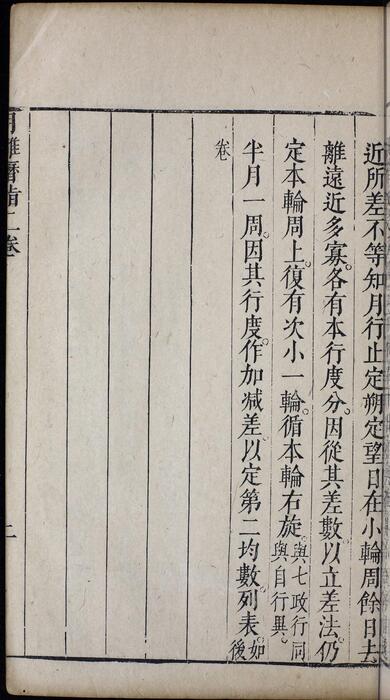 近所差不等知月行止定朔定望日在小輪周餘日去
離遠近多寡。各有本行度分。因從其差數以立差法。仍
定本輪周上。復有次小一輪。循本輪右旋。與七政行同與自行異。
半月一周。因其行度。作加減差。以定第二均數。列表。如後
卷
月離曆指二卷
二